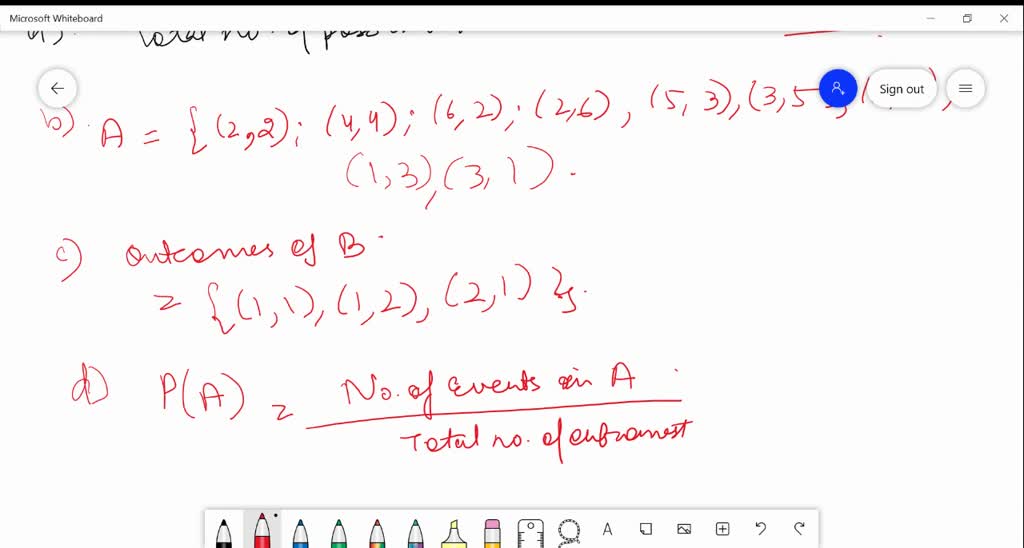 Microsoft Whiteboard
Total no. of poss
Sign out
b). A = { (2,2); (4,4); (6,2); (2,6), (5,3), (3,5
(1,3), (3,1).
c) outcomes of B.
= { (1,1), (1,2), (2,1) }.
d) P(A) = No. of events in A
Total no. of
A